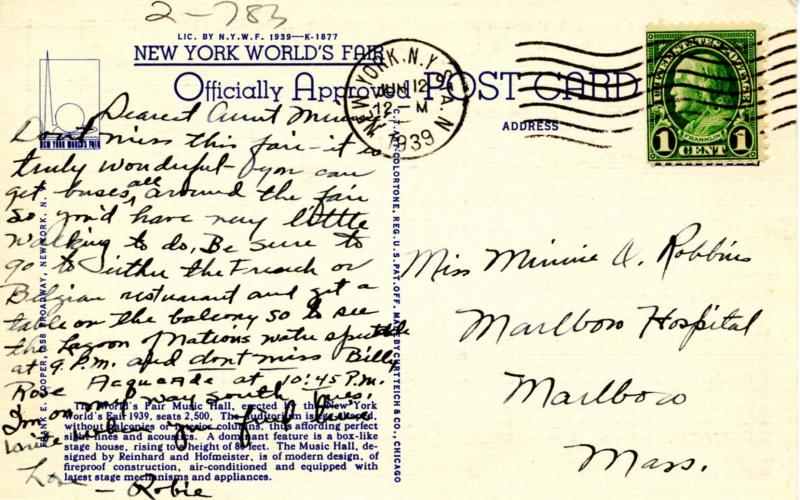 2-783
LIC. BY N.Y.W.F. 1939—K-1877
NEW YORK WORLD'S FAIR
Officially Approved POST CARD
NEW YORK WORLD'S FAIR
NEW YORK, N.Y. STA. N
JUN 12
12 - M
1939
UNITED STATES POSTAGE
FRANKLIN
1 CENT 1
ADDRESS
Dearest Aunt Minnie
Dont miss this fair - it is
truly wonderful - you can
get buses all around the fair
so you'd have very little
walking to do. Be sure to
go to either the French or
Belgian restuarant and get a
table on the balcony so to see
the Lagoon of Nations water spectacle
at 9 P.M. and dont miss Billy
Rose Acquacade at 10:45 P.M.
I'm on my way south Tues.
write when you feel like
Love
- Robie
Miss Minnie A. Robbins
Marlboro Hospital
Marlboro
Mass.
The World's Fair Music Hall, erected in the New York
World's Fair 1939, seats 2,500. The auditorium is
without balconies or interior columns, thus affording perfect
sight lines and acoustics. A dominant feature is a box-like
stage house, rising to height of 80 feet. The Music Hall, de-
signed by Reinhard and Hofmeister, is of modern design, of
fireproof construction, air-conditioned and equipped with
latest stage mechanisms and appliances.
FRANK E. COOPER, BROADWAY, NEW YORK, N. Y.
C.T. ART-COLORTONE, REG. U.S. PAT. OFF. MADE BY CURT TEICH & CO., CHICAGO